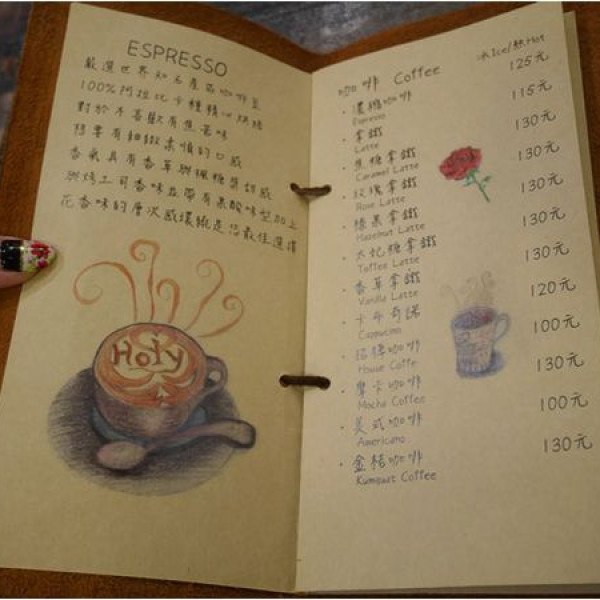 ESPRESSO
嚴選世界知名產區咖啡豆
100%阿拉比卡種精心烘焙
對於不喜歡有焦苦味
想要有細緻柔順的口感
香氣具有香草與楓糖漿甜感
與烤土司香味並帶有果酸味加上
花香味的層次感環繞是您最佳選擇
Holy
咖啡 Coffee 冰Ice/熱Hot
· 濃糖咖啡 125元
Espresso
· 拿鐵 115元
Latte
· 焦糖拿鐵 130元
Caramel Latte
· 玫瑰拿鐵 130元
Rose Latte
· 榛果拿鐵 130元
Hazelnut Latte
· 太妃糖拿鐵 130元
Toffee Latte
· 香草拿鐵 130元
Vanilla Latte
· 卡布奇諾 120元
Cappucino
· 招德咖啡 100元
House Coffe
· 摩卡咖啡 130元
Mocha Coffee
· 美式咖啡 100元
Americano
· 金桔咖啡 130元
Kumquat Coffee